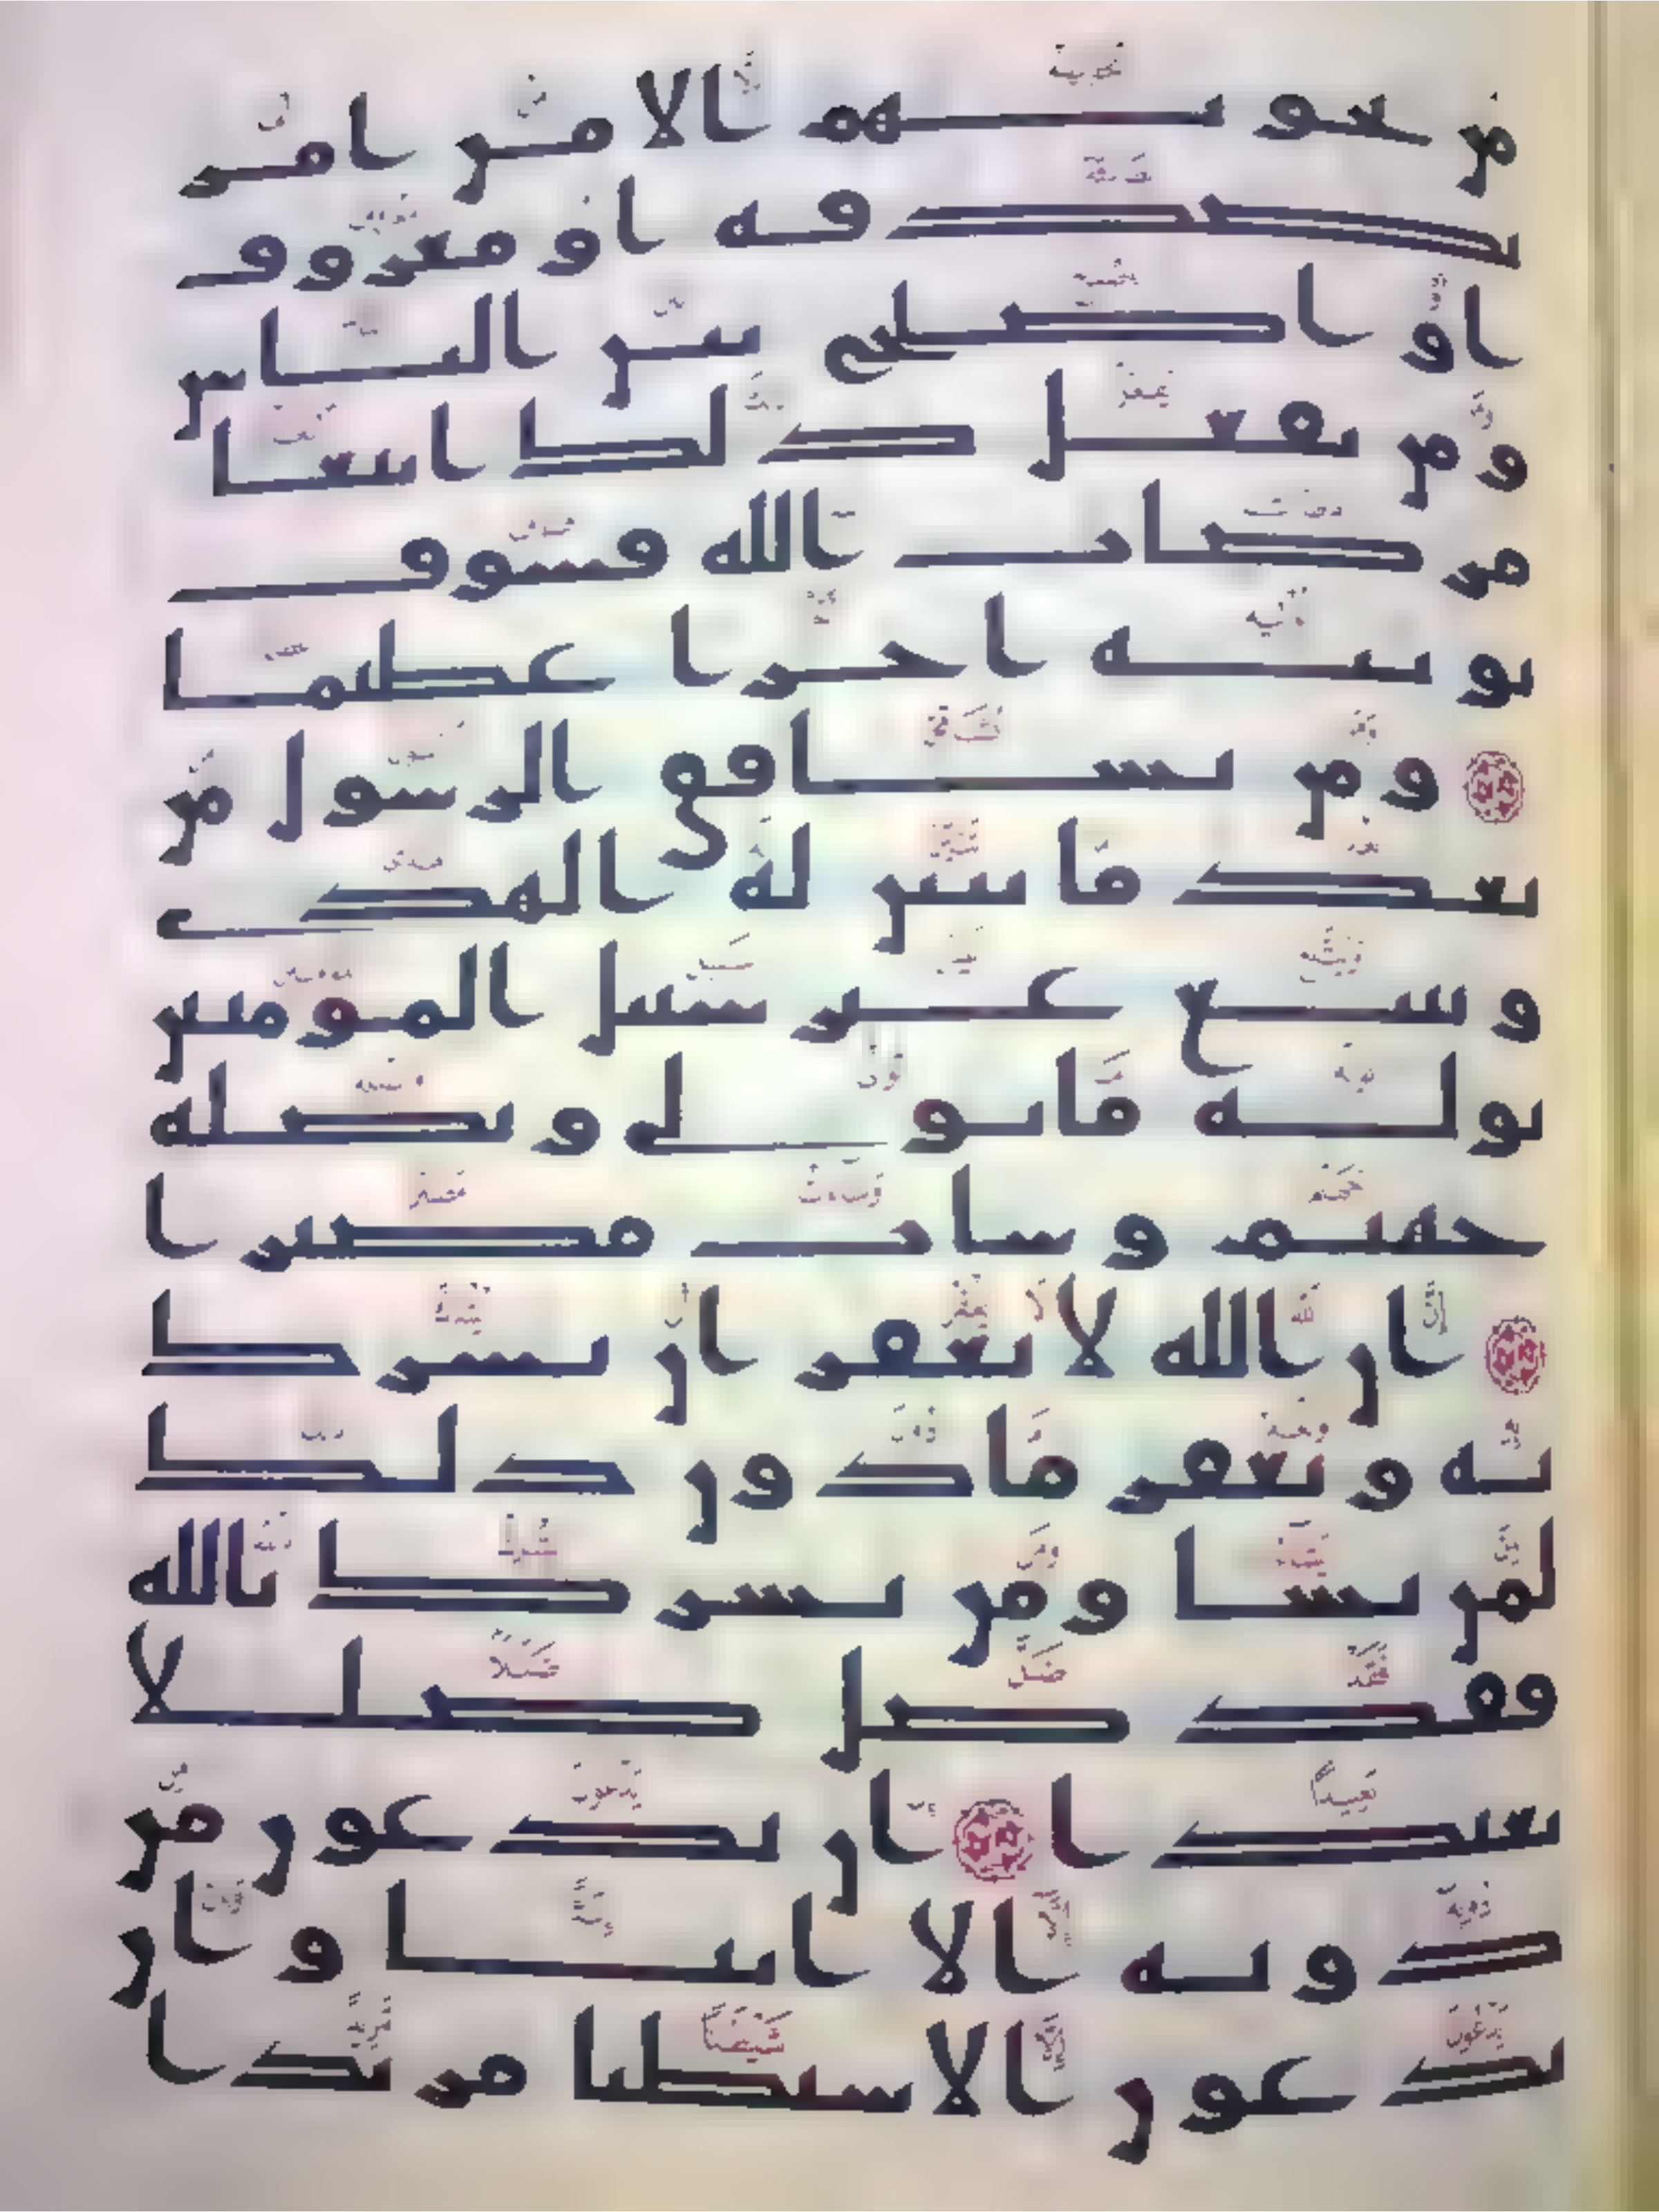 من نجويهم الا من امر
بصدقه او معروف
او اصلح بين الناس
ومن يفعل ذلك ابتغا
مرضات الله فسوف
نوتيه اجرا عظيما
ومن يشاقق الرسول من
بعد ما تبين له الهدى
ويتبع غير سبيل المومنين
نوله ما تولى ونصله
جهنم وسات مصيرا
ان الله لا يغفر ان يشرك
به ويغفر ما دون ذلك
لمن يشا ومن يشرك بالله
فقد ضل ضللا
بعيدا ان يدعون من
دونه الا انثا وان
يدعون الا شيطنا مريدا